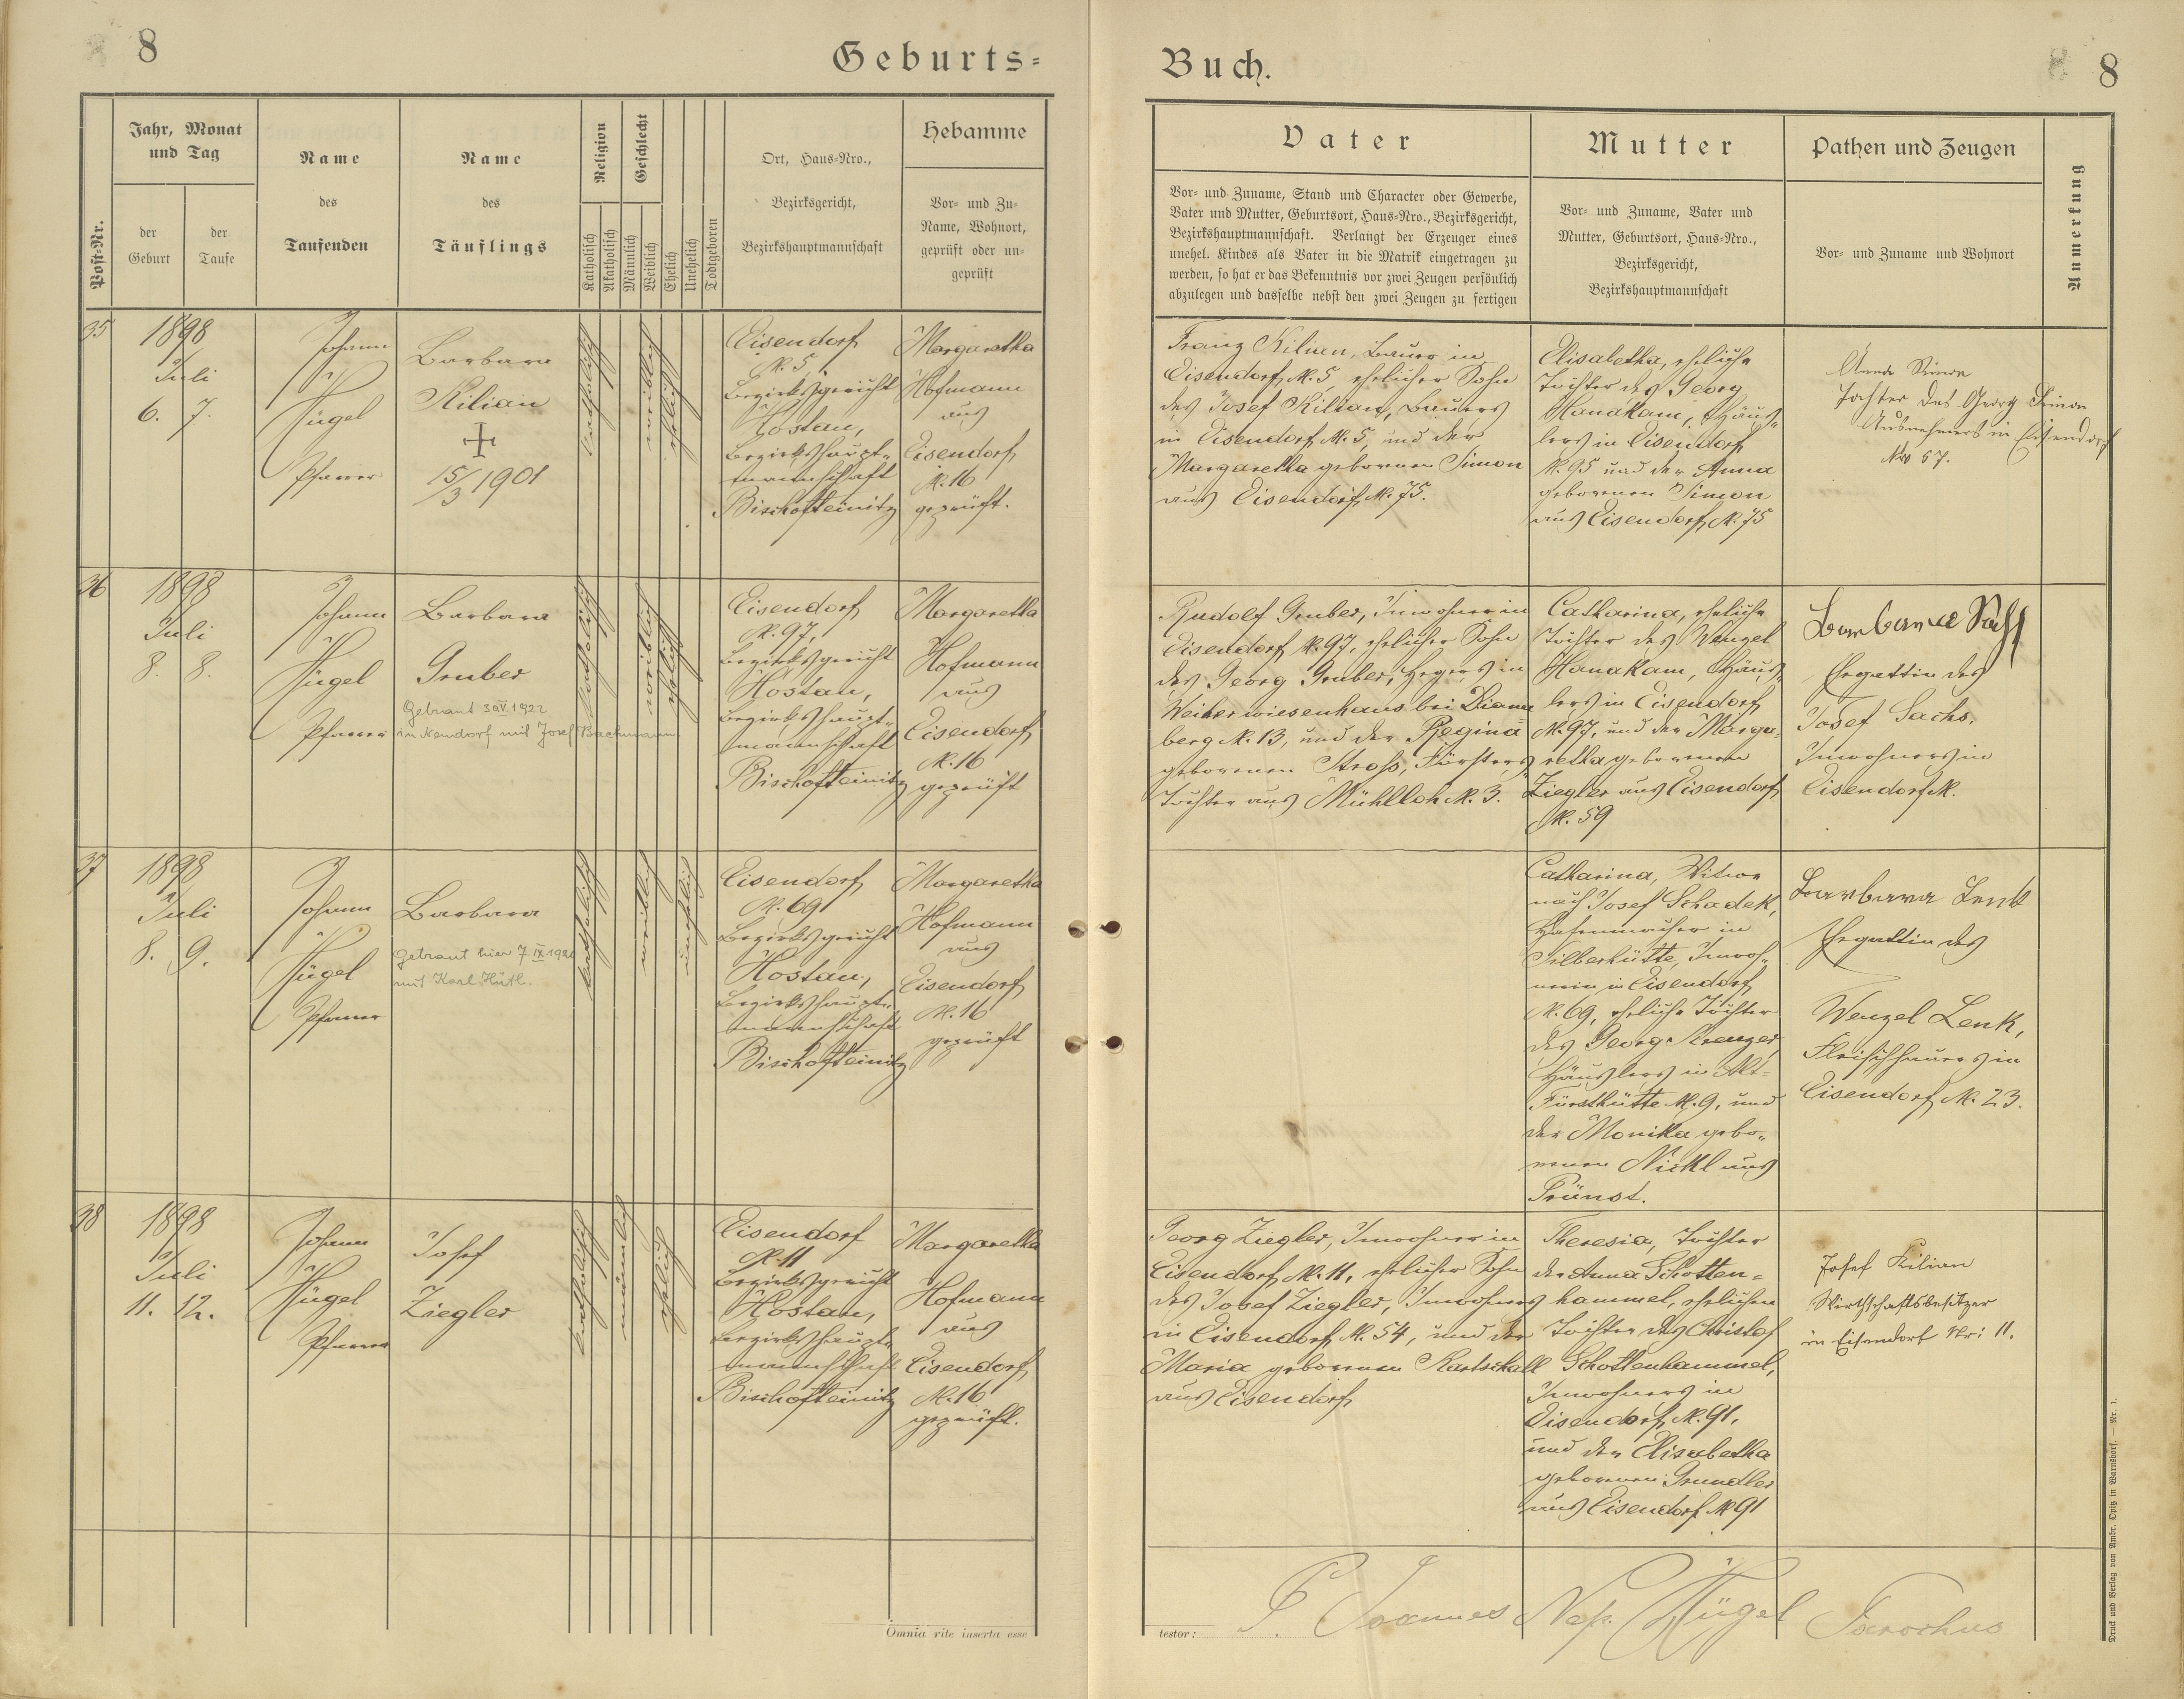 8
Geburts-
Post-Nr.
Jahr, Monat
und Tag
der
Geburt
der
Taufe
Name
des
Taufenden
Name
des
Täuflings
Religion
Katholisch
Akatholisch
Geschlecht
Männlich
Weiblich
Ehelich
Unehelich
Todtgeboren
Ort, Haus-Nro.,
Bezirksgericht,
Bezirkshauptmannschaft
Hebamme
Vor- und Zu-
Name, Wohnort,
geprüft oder un-
geprüft
35
1898
Juli
6. 7.
Johann
Hügel
Pfarrer
Barbara
Kilian
15/3 1901
katholisch
weiblich
ehelich
Eisendorf
N. 5,
Bezirksgericht
Hostau,
Bezirkshaupt-
mannschaft
Bischofteinitz
Margaretha
Hofmann
aus
Eisendorf
N. 16
geprüft.
36
1898
Juli
8. 8.
Johann
Hügel
Pfarrer
Barbara
Gruber
Getraut 30.V.1922
in Neudorf mit Josef Bachmann
katholisch
weiblich
ehelich
Eisendorf
N. 97,
Bezirksgericht
Hostau,
Bezirkshaupt-
mannschaft
Bischofteinitz
Margaretha
Hofmann
aus
Eisendorf
N. 16
geprüft
37
1898
Juli
8. 9.
Johann
Hügel
Pfarrer
Barbara
Getraut hier 7 IX
mit Karl Hütl.
katholisch
weiblich
unehelich
Eisendorf
N. 69
Bezirksgericht
Hostau,
Bezirkshaupt-
mannschaft
Bischofteinitz
Margaretha
Hofmann
aus
Eisendorf
N. 16
geprüft
38
1898
Juli
11. 12.
Johann
Hügel
Pfarrer
Josef
Ziegler
katholisch
männlich
ehelich
Eisendorf
N. 11
Bezirksgericht
Hostau,
Bezirkshaupt-
mannschaft
Bischofteinitz
Margaretha
Hofmann
aus
Eisendorf
N. 16
geprüft.
Omnia rite inserta esse
Buch.
8
Vater
Vor- und Zuname, Stand und Character oder Gewerbe,
Vater und Mutter, Geburtsort, Haus-Nro., Bezirksgericht,
Bezirkshauptmannschaft. Verlangt der Erzeuger eines
unehel. Kindes als Vater in die Matrik eingetragen zu
werden, so hat er das Bekenntnis vor zwei Zeugen persönlich
abzulegen und dasselbe nebst den zwei Zeugen zu fertigen
Mutter
Vor- und Zuname, Vater und
Mutter, Geburtsort, Haus-Nro.,
Bezirksgericht,
Bezirkshauptmannschaft
Pathen und Zeugen
Vor- und Zuname und Wohnort
Anmerkung
Franz Kilian, Bauer in
Eisendorf, N. 5, ehelicher Sohn
des Josef Kilian, Bauers
in Eisendorf N. 5, und der
Margaretha geborenen Simon
aus Eisendorf, N. 75.
Elisabetha, eheliche
Tochter des Georg
Hanakam, Häus-
lers in Eisendorf
N. 95 und der Anna
geborenen Simon
aus Eisendorf, N. 75
Anna Simon
Tochter des Georg Simon
Ausnehmers in Eisendorf
Nro 57.
Rudolf Gruber, Inwohner in
Eisendorf N. 97, ehelicher Sohn
des Georg Gruber, Hegers in
Weiherwiesenhaus bei Diana-
berg N. 13, und der Regina
geborenen Stroß, Försters-
tochter aus Mühlloh N. 3.
Catharina, eheliche
Tochter des Wenzel
Hanakam, Häus-
lers in Eisendorf
N. 97, und der Marga-
retha geborenen
Ziegler aus Eisendorf
N. 59
Barbara
Ehegattin des
Josef Sachs,
Inwohners in
Eisendorf N.
Catharina, Witwe
nach Josef Schadek,
in
Silberhütte, Inwoh-
nerin in Eisendorf
N. 69, eheliche Tochter
des Georg Krenzer,
Häuslers in Alt-
Fürsthütte N. 9, und
der Monika gebo-
renen Nickl aus
Prünst.
Barbara Lenk
Ehegattin des
Wenzel Lenk,
Fleischhauers in
Eisendorf N. 23.
Georg Ziegler, Inwohner in
Eisendorf N. 11, ehelicher Sohn
des Josef Ziegler, Inwohners
in Eisendorf, N. 54, und der
Maria geborenen Kartschall
aus Eisendorf
Theresia, Tochter
der Anna Schotten-
hammel, ehelichen
Tochter des Christof
Schottenhammel,
Inwohners in
Eisendorf N. 91,
und der Elisabetha
geborenen Grundler
aus Eisendorf N. 91
Josef Kilian
Wirthschaftsbesitzer
in Eisendorf Nr: 11.
testor:
P. Joannes Nep. Hügel Parochus
Druck und Verlag von Ambr. Opitz in Warnsdorf. — Nr. 1.